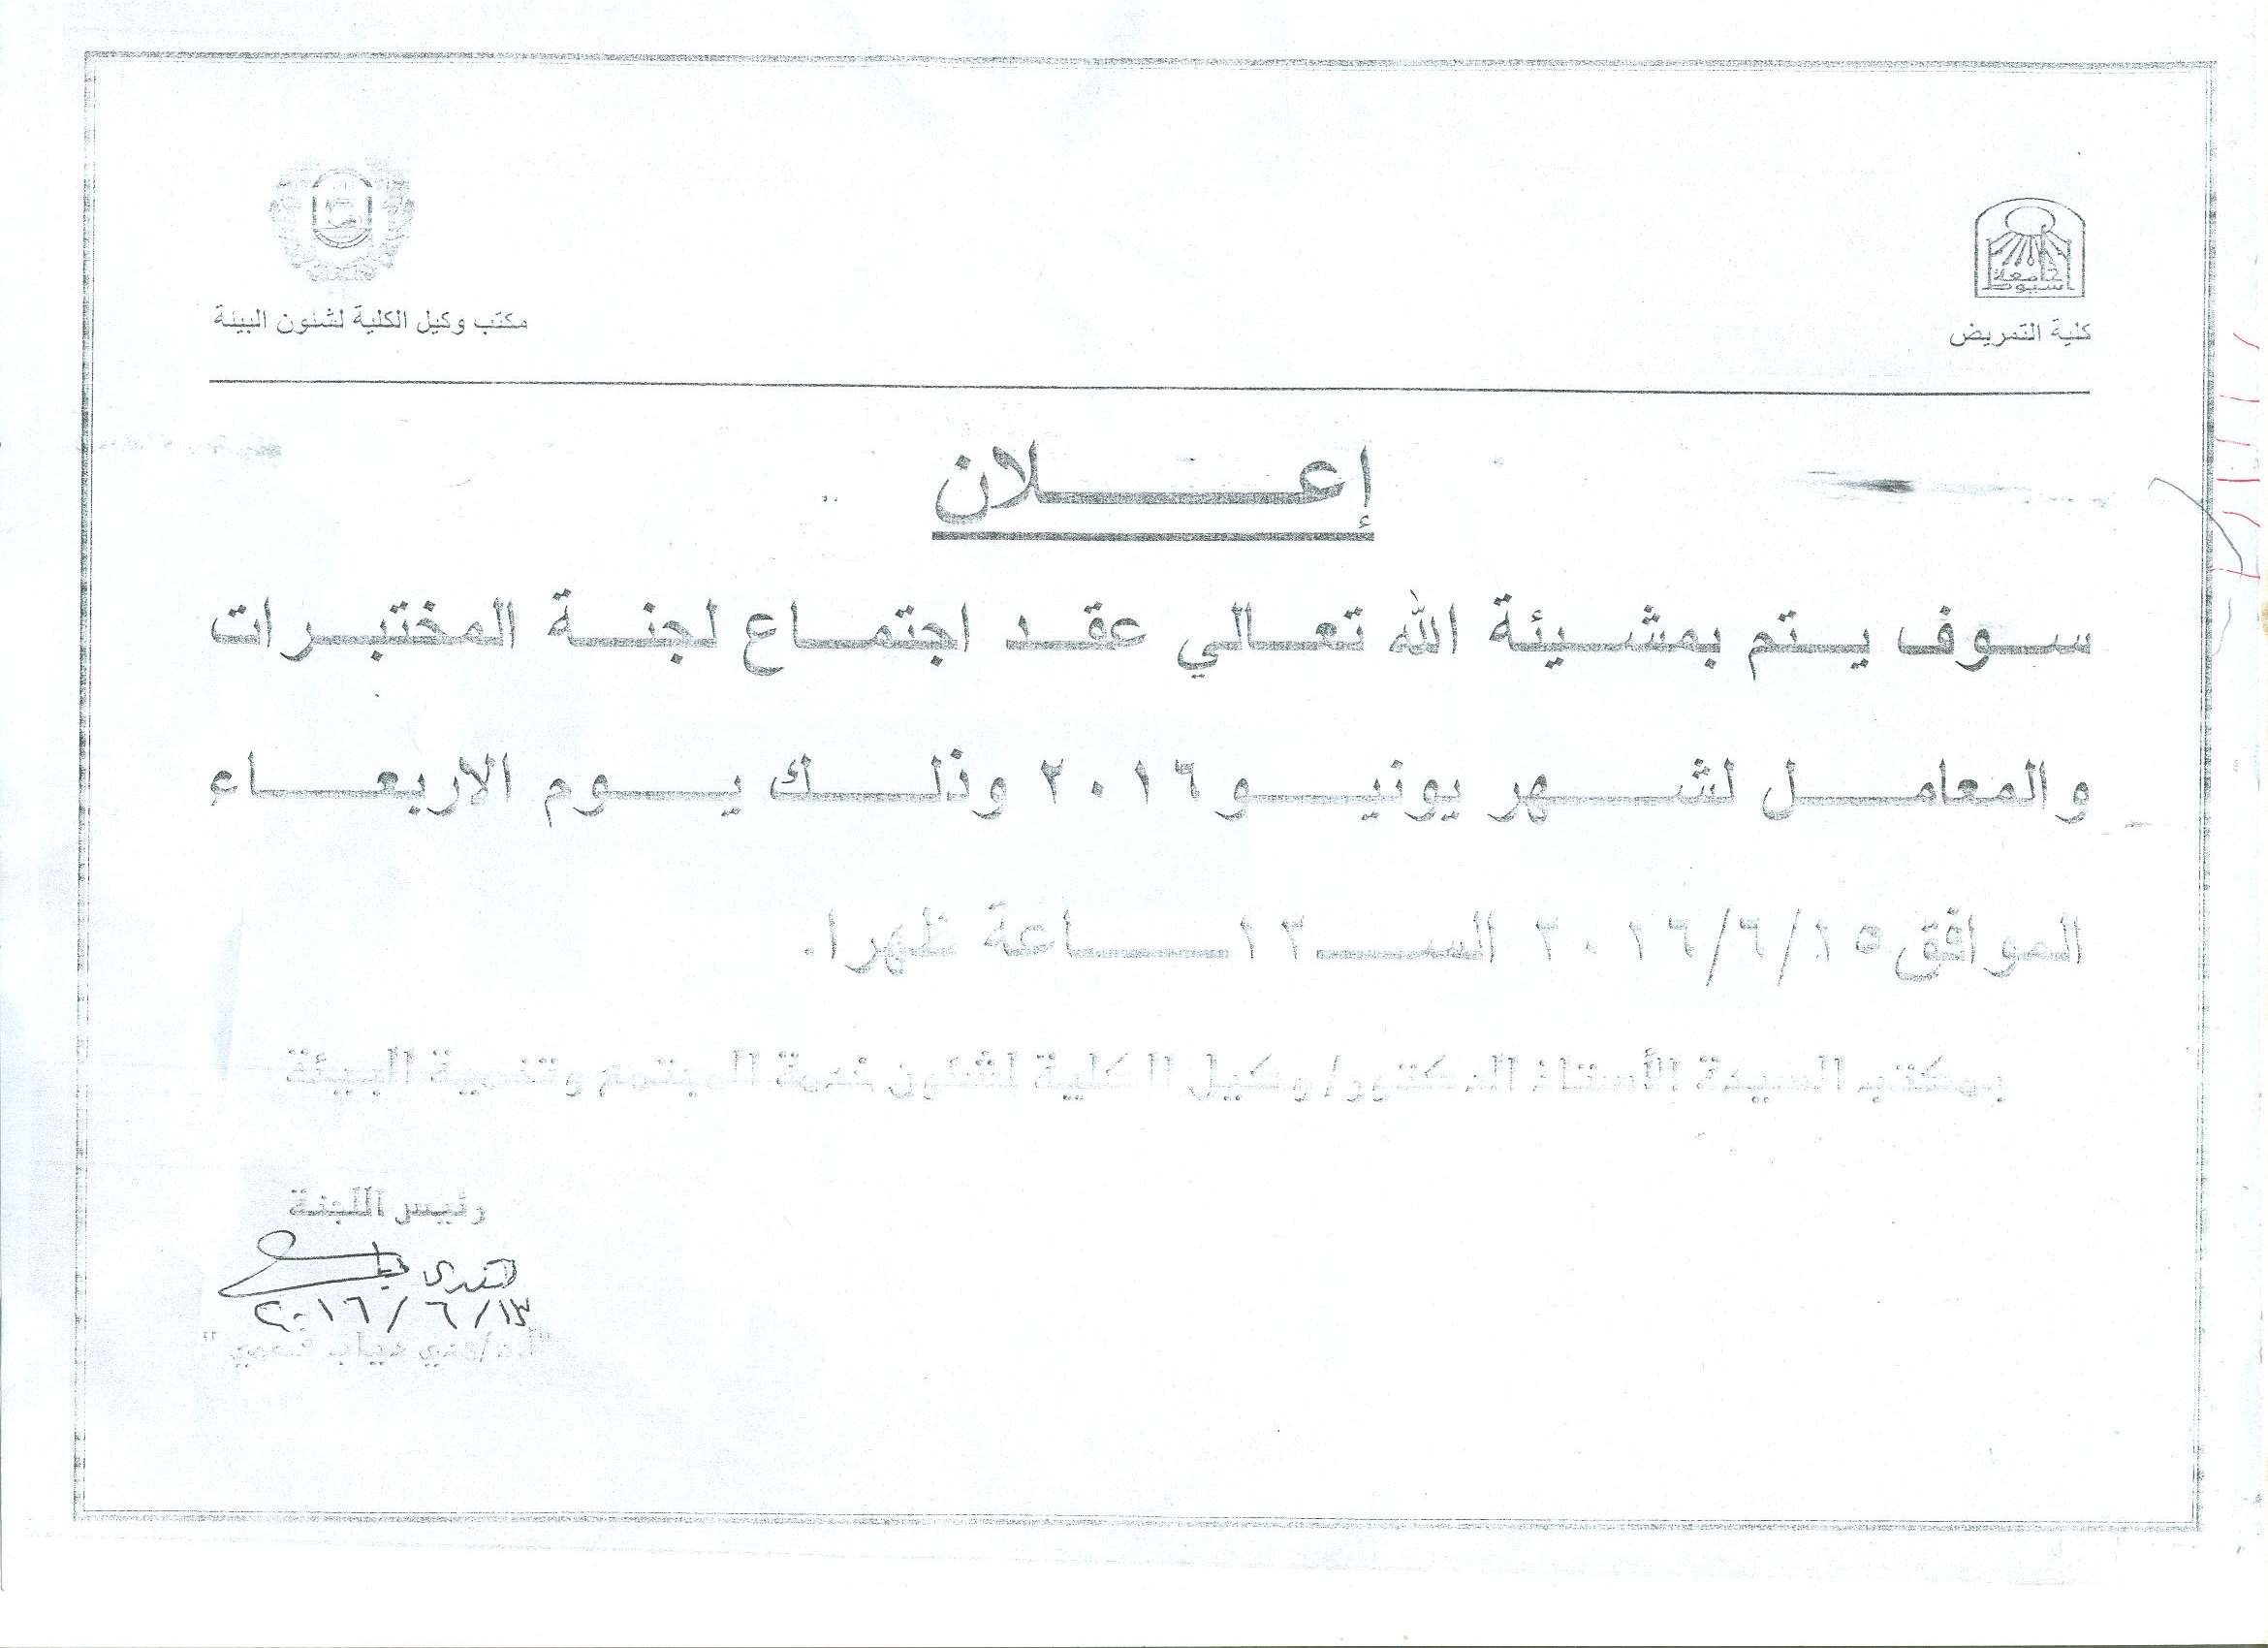 جامعة
أسيوط
كلية التمريض
مكتب وكيل الكلية لشئون البيئة
إعـــــــلان
سوف يتم بمشيئة الله تعالي عقد اجتماع لجنة المختبرات
والمعامل لشهر يونيو ٢٠١٦ وذلك يوم الاربعاء
الموافق ٢٠١٦/٦/١٥ الســـ١٢ــاعة ظهرا.
بمكتب السيدة الأستاذ الدكتور/ وكيل الكلية لشئون خدمة المجتمع وتنمية البيئة
رئيس اللجنة
٢٠١٦/٦/١٣